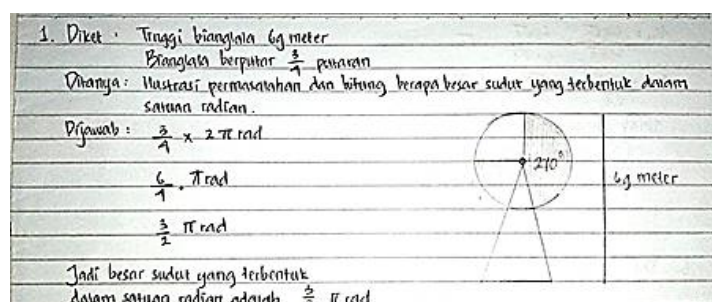 1. Diket : Tinggi bianglala 69 meter
Bianglala berputar 3/4 putaran
Ditanya : Ilustrasi permasalahan dan hitung berapa besar sudut yang terbentuk dalam
satuan radian.
Dijawab :
3/4 × 2 π rad
6/4 . π rad
3/2 π rad
270°
69 meter
Jadi besar sudut yang terbentuk
dalam satuan radian adalah 3/2 π rad